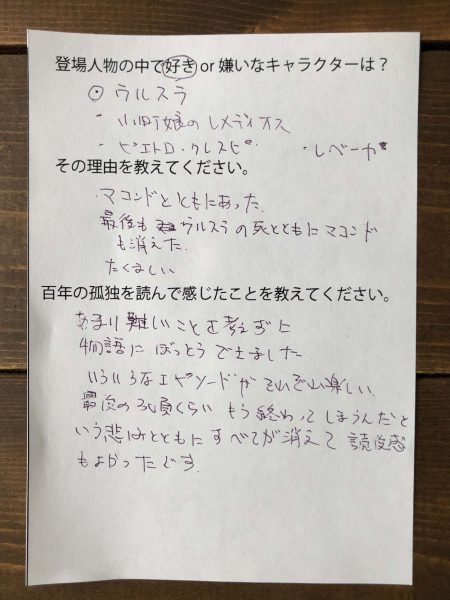 登場人物の中で好き or 嫌いなキャラクターは？
◎ ウルスラ
・小町娘のレメディオス
・ピエトロ・クレスピ ・レベーカ
その理由を教えてください。
マコンドとともにあった。
最後も ウルスラの死とともにマコンド
も消えた。
たくましい
百年の孤独を読んで感じたことを教えてください。
あまり難しいことを考えずに
物語にぼっとうできました
いろいろなエピソードがそれぞれ楽しい
最後の 頁くらい もう終わってしまうんだと
いう悲しさとともにすべてが消えて 読後感
もよかったです。